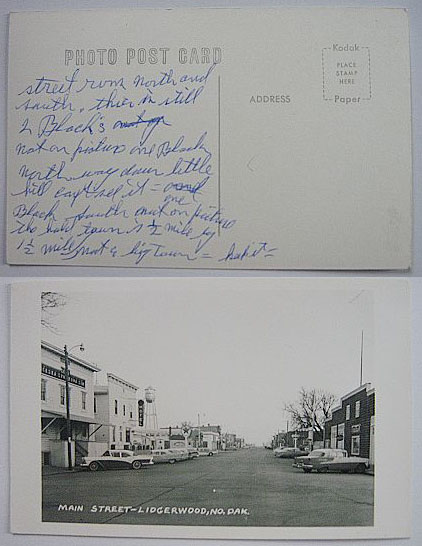 PHOTO POST CARD
street runn North and
south, thier is still
2 Block's
not on picture one Block
North way down little
hill can't see it = one
Block south not on picture
the hold town is 1½ mile by
1½ mile not a big town =
Kodak
PLACE
STAMP
HERE
Paper
ADDRESS
MAIN STREET-LIDGERWOOD, NO. DAK.